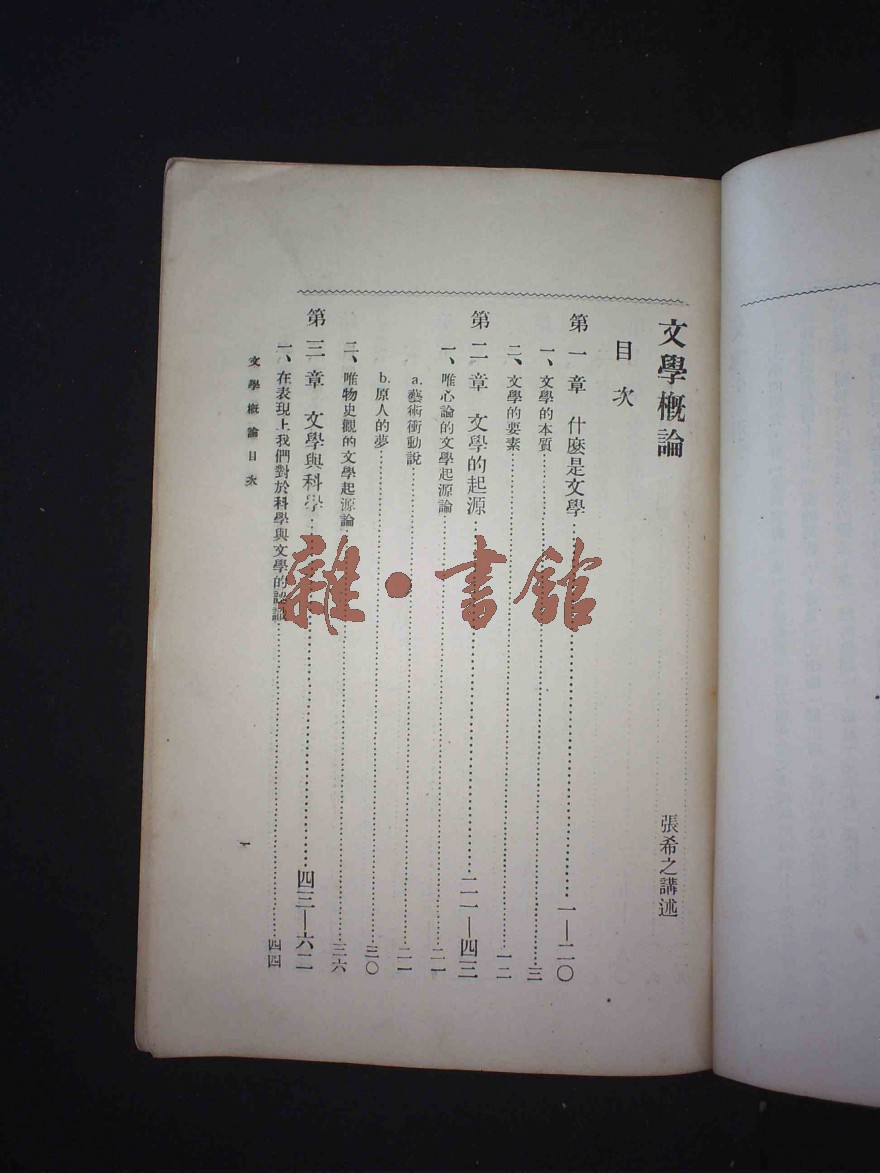 文學概論
張希之講述
目次
第一章 什麼是文學……一—二〇
一、文學的本質……三
二、文學的要素……一二
第二章 文學的起源……二一—四三
一、唯心論的文學起源論……二一
a.藝術衝動說……二一
b.原人的夢……三〇
二、唯物史觀的文學起源論……三六
第三章 文學與科學……四三—六二
一、在表現上我們對於科學與文學的認識……四四
文學概論目次
一
雜·書館